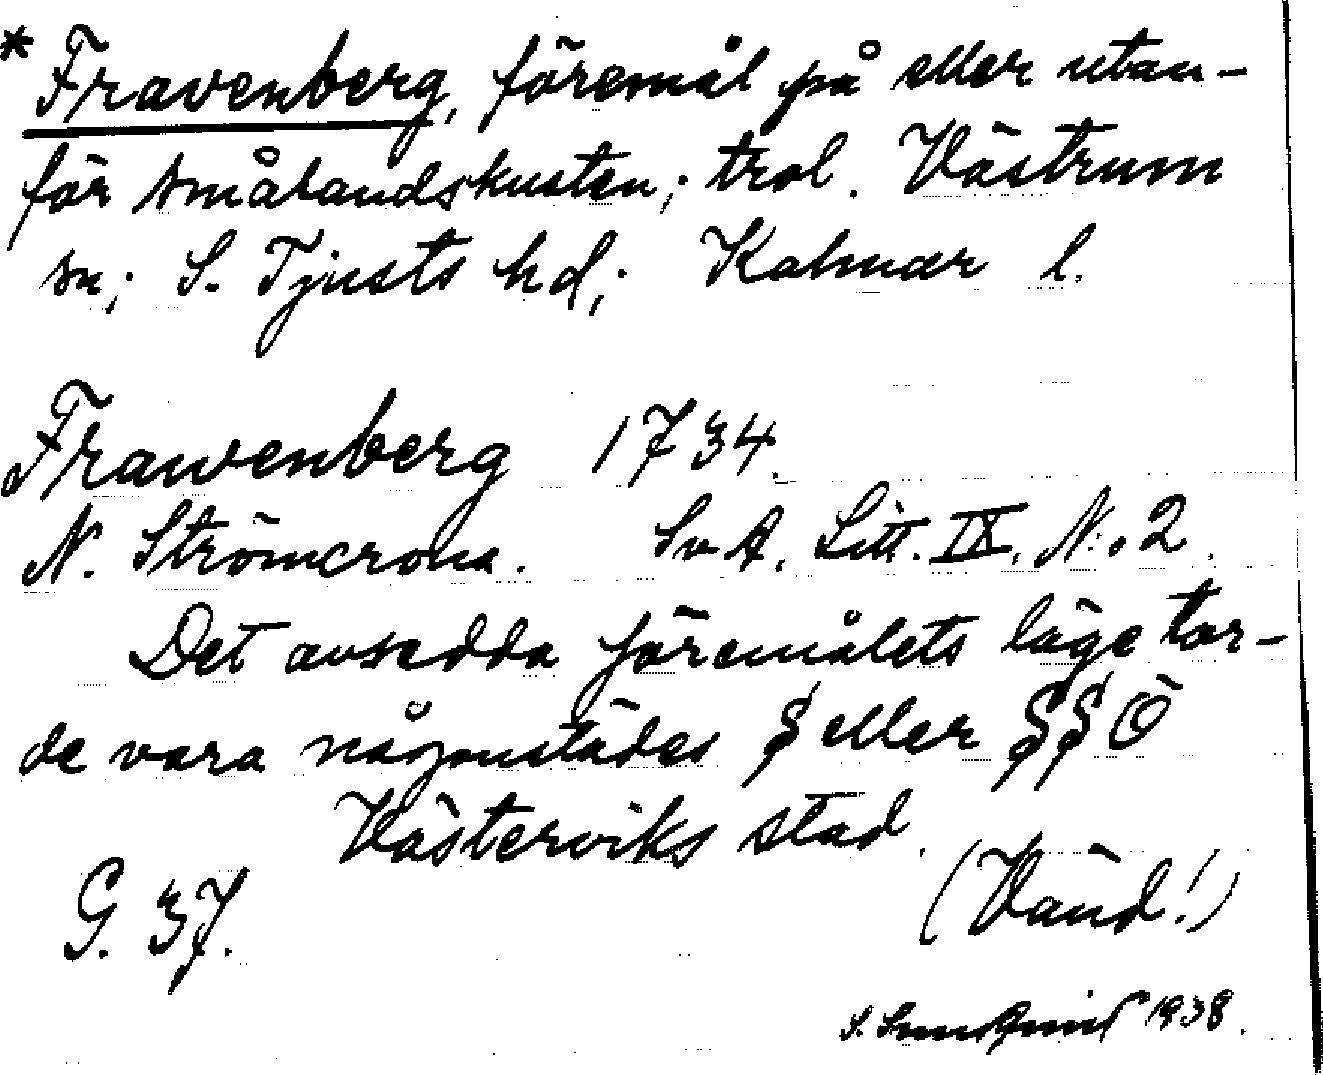 * Fravenberg, föremål på eller utan-
för smålandskusten; trol. Västrum
sn; S. Tjusts hd; Kalmar l.
Frawenberg 1734.
N. Strömcrona. SvA. Litt. IX, N:o 2.
Det avsedda föremålets läge tor-
de vara någonstädes S eller SSÖ
Västerviks stad.
(Vänd!)
G. 37.
S. 1938.